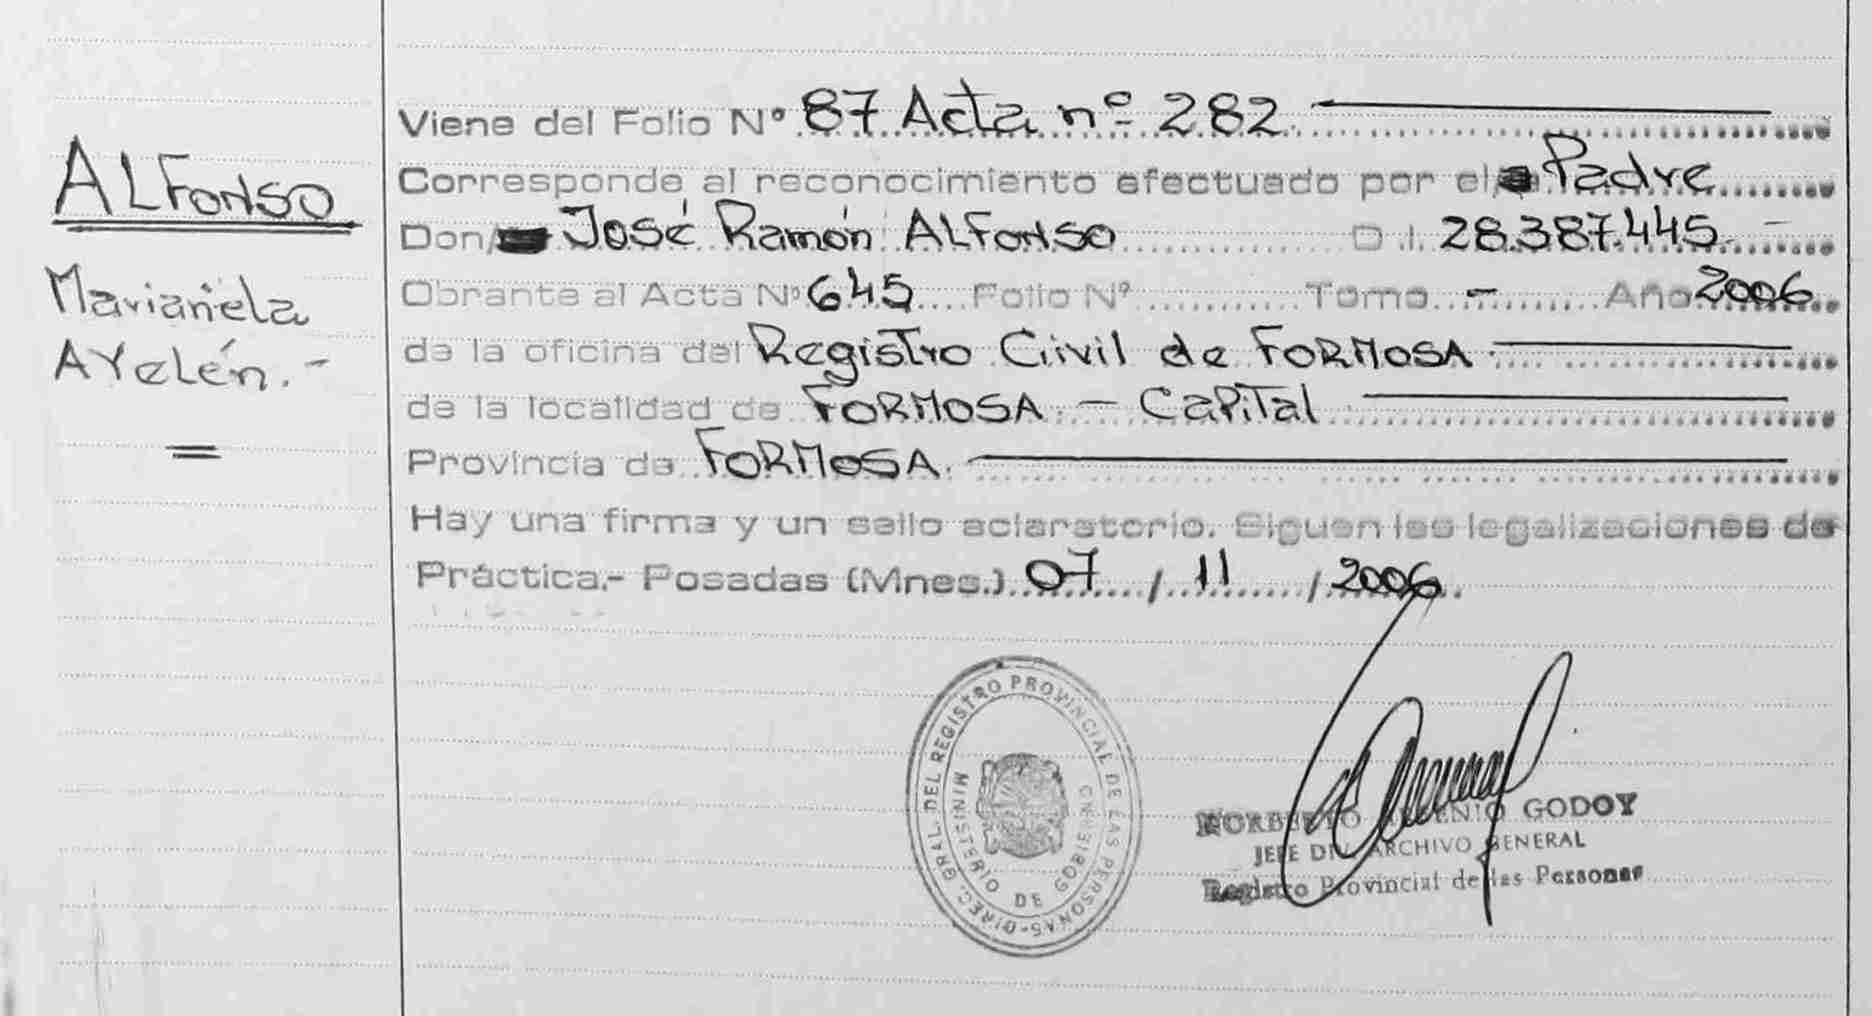 ALFONSO
Marianela
AYelén.-
Viene del Folio Nº 87 Acta nº 282
Corresponde al reconocimiento efectuado por el/ Padre
Don/ José Ramón ALFONSO D.I. 28.387.445.-
Obrante al Acta Nº 645 Folio Nº Tomo - Año 2006
de la oficina del Registro Civil de FORMOSA
de la localidad de FORMOSA - CAPITAL
Provincia de FORMOSA.
Hay una firma y un sello aclaratorio. Siguen las legalizaciones de
Práctica.- Posadas (Mnes.) 07 / 11 / 2006
DIREC. GRAL. DEL REGISTRO PROVINCIAL DE LAS PERSONAS-
MINISTERIO DE GOBIERNO
GODOY
JEFE ARCHIVO GENERAL
Registro Provincial de las Personas